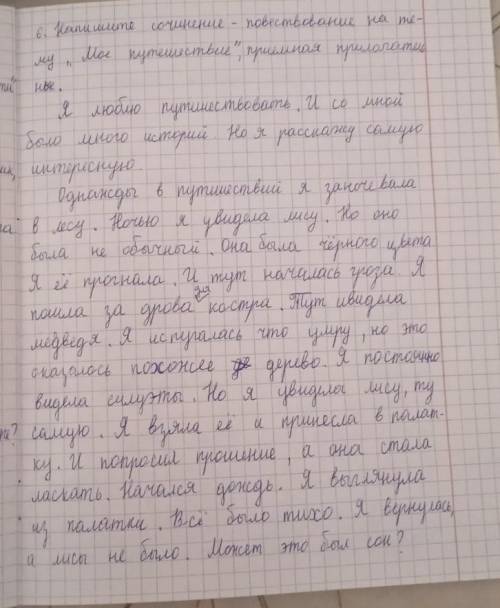 6. Напишите сочинение - повествование на те-
му „Мое путешествие", применяя прилагатель
ные.
Я люблю путишествовать. И со мной
было много историй. Но я расскажу самую
интиресную.
Однажды в путишествий я заночевала
в лесу. Ночью я увидела лису. Но оно
была не обычный. Она была чёрного цвета
Я её прогнала. И тут началась гроза. Я
пошла за дрова для костра. Тут ивидела
медведя. Я испугалась что умру, но это
оказалось похожее дерево. Я постоянно
видела силуэты. Но я увидела лису, ту
самую. Я взяла её и принесла в палат-
ку. И попросил прошение, а она стала
ласкать. Начался дождь. Я выглянула
из палатки. Всё было тихо. Я вернулась,
а лисы не было. Может это был сон?